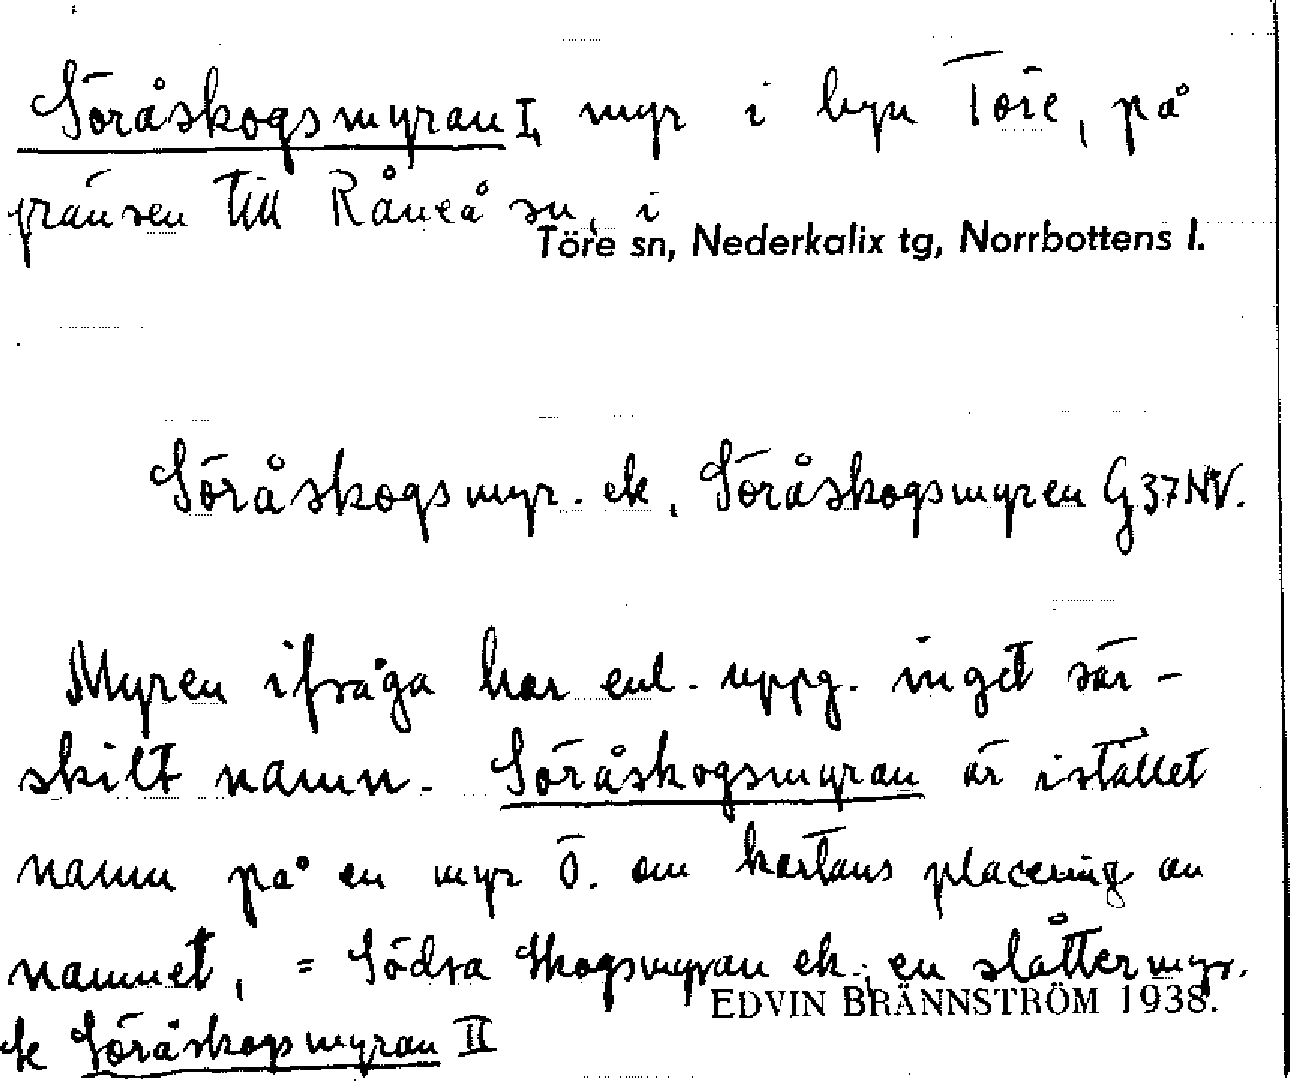 Söråskogsmyran I, myr i byn Töre, på
gränsen till Råneå sn, i
Töre sn, Nederkalix tg, Norrbottens l.
Söråskogsmyr. ek, Söråskogsmyren G 37 NV.
Myren ifråga har enl. uppg. inget sär-
skilt namn. Söråskogsmyran är istället
namn på en myr Ö. om kartans placering av
namnet, = Södra Skogsmyran ek.; en slåttermyr.
EDVIN BRÄNNSTRÖM 1938.
Söråskogsmyran II